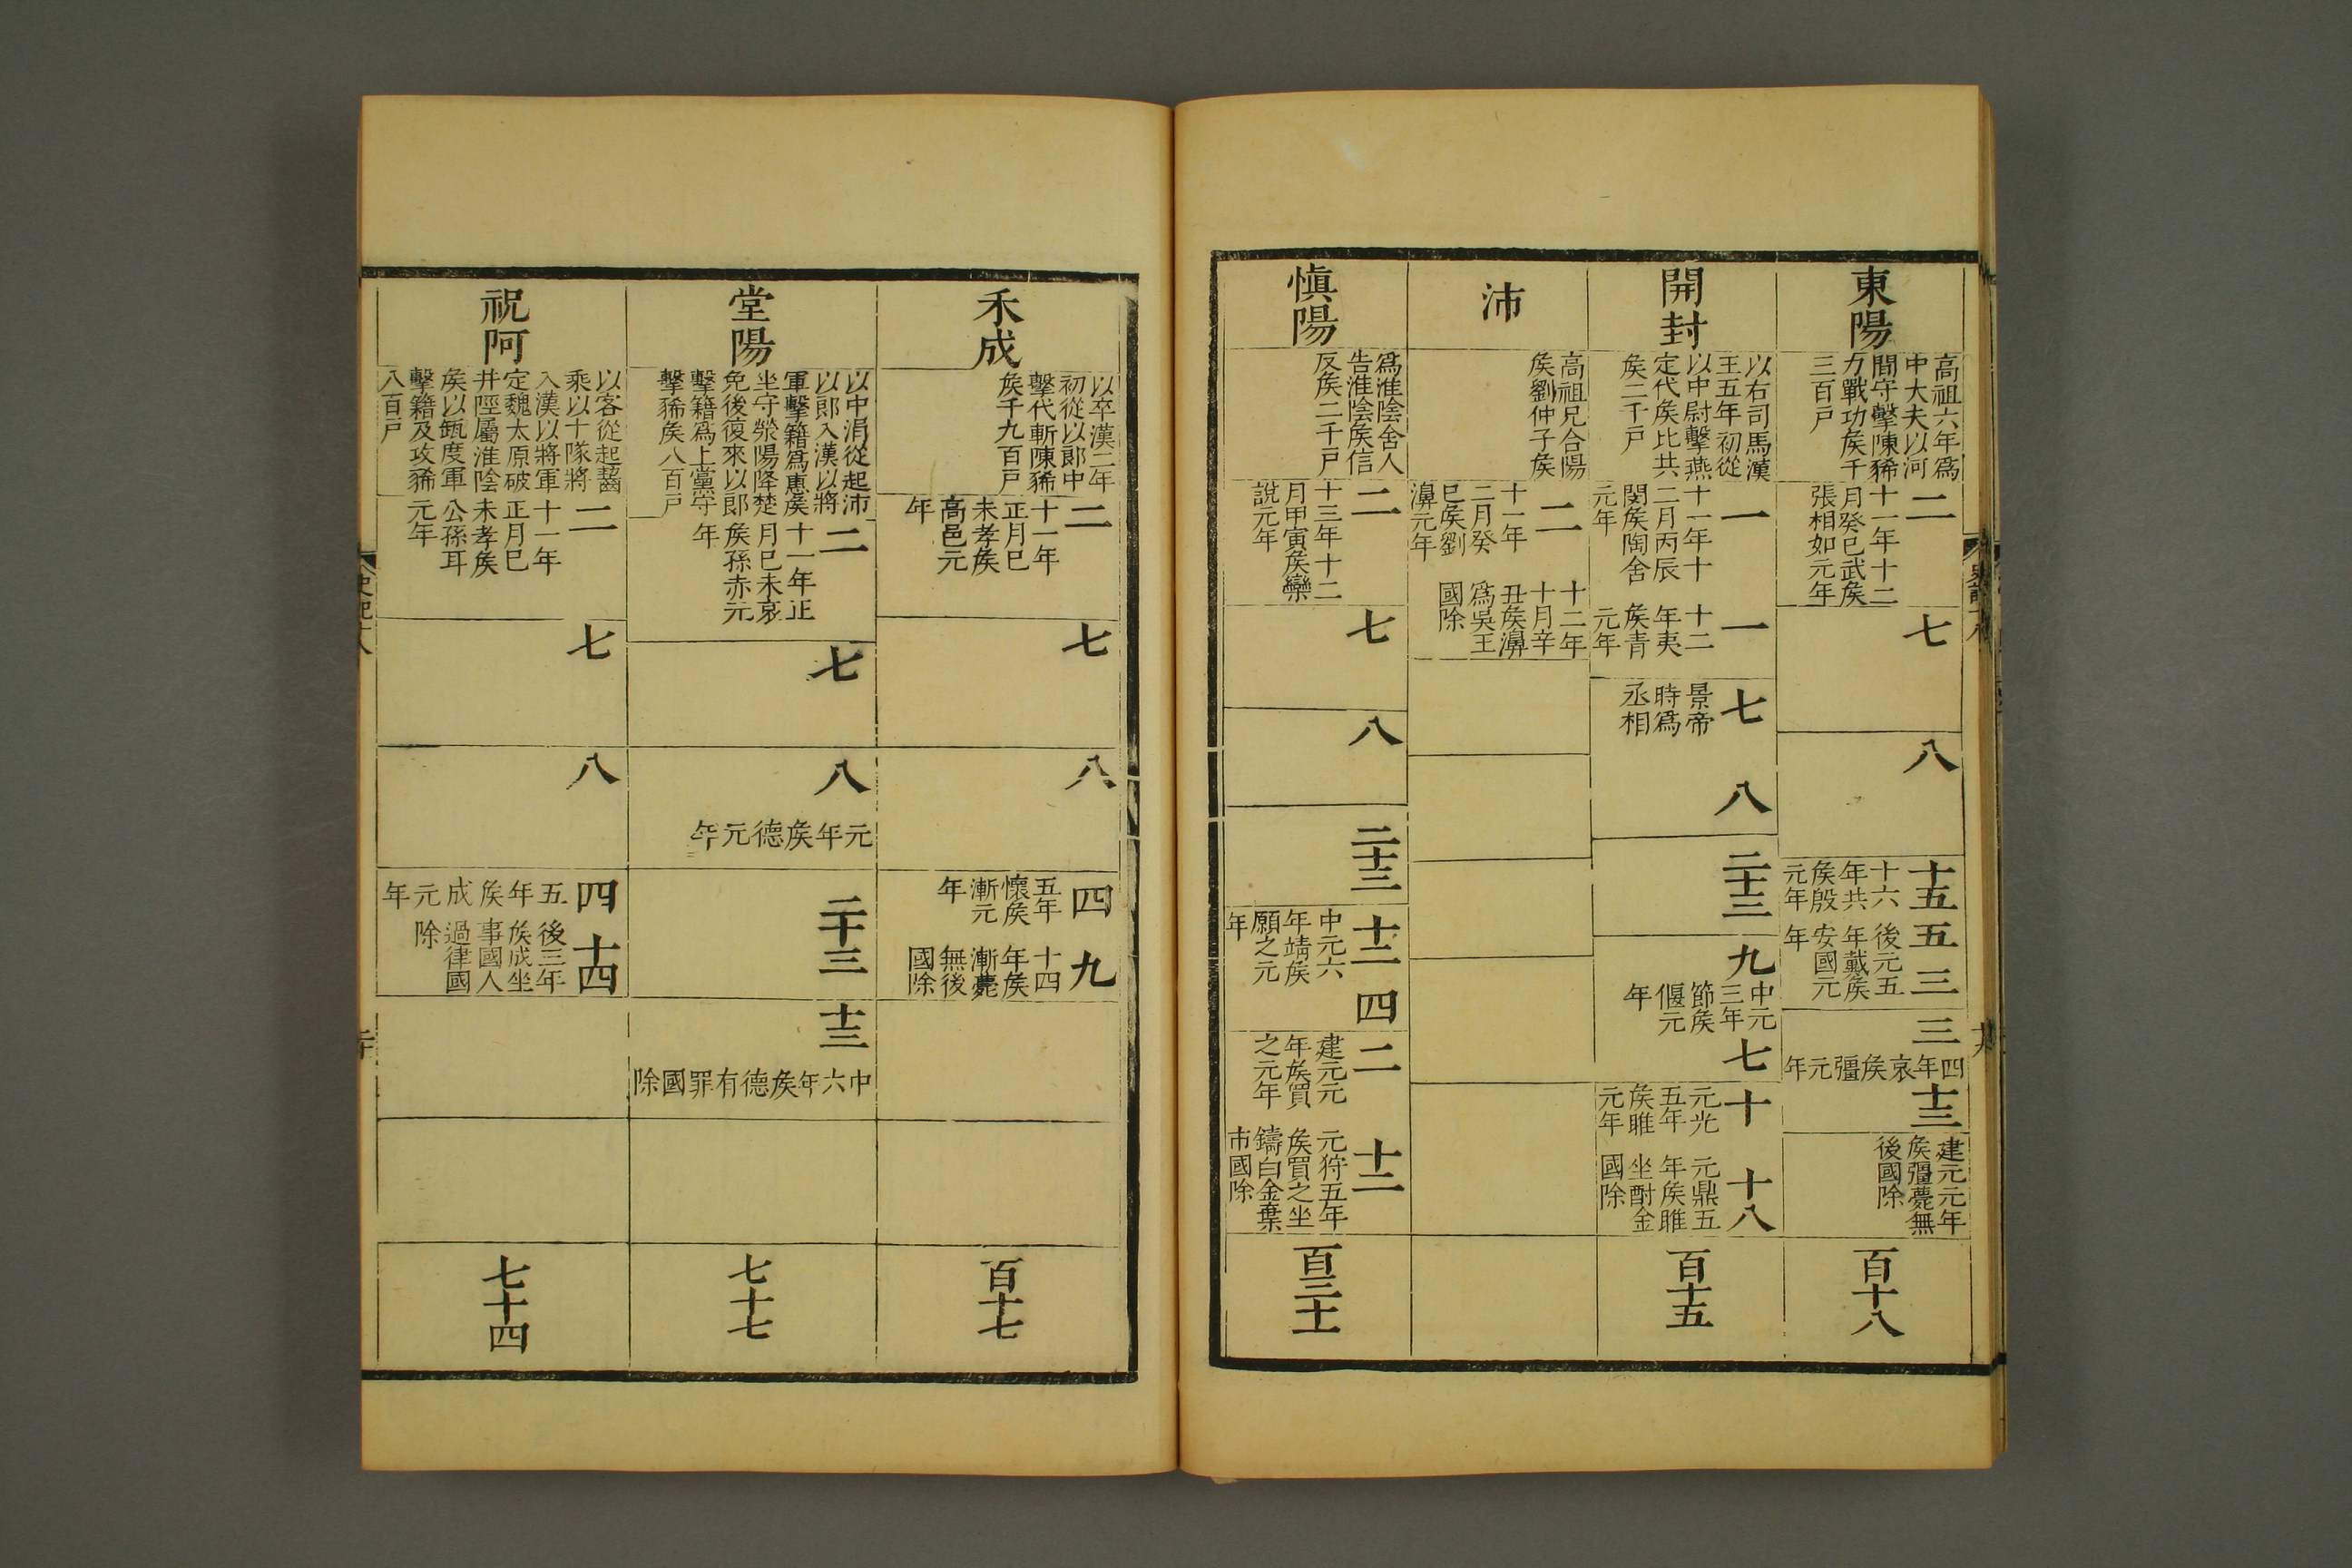 東陽
高祖六年爲
中大夫以河
間守擊陳豨
力戰功矦千
三百戸
二
十一年十二
月癸巳武矦
張相如元年
七
八
十五
十六
年共
矦殷
元年
五
後元五
年戴矦
安國元
年
三
三
四年哀矦彊元年
十三
建元元年
矦彊薨無
後國除
百十八
開封
以右司馬漢
王五年初從
以中尉擊燕
定代矦比共
矦二千戸
一
十一年十
二月丙辰
閔矦陶舍
元年
一
十二
年夷
矦青
元年
七
景帝
時爲
丞相
八
二十三
九
中元
三年
節矦
偃元
年
七
十
元光
五年
矦睢
元年
十八
元鼎五
年矦睢
坐酎金
國除
百十五
沛
高祖兄合陽
矦劉仲子矦
二
十一年
二月癸
巳矦劉
濞元年
十二年
十月辛
丑矦濞
爲吳王
國除
慎陽
爲淮陰舍人
告淮陰矦信
反矦二千戸
二
十三年十二
月甲寅矦欒
說元年
七
八
二十三
十二
中元六
年靖矦
願之元
年
四
二
建元元
年矦買
之元年
十二
元狩五年
矦買之坐
鑄白金棄
市國除
百三十一
禾成
以卒漢二年
初從以郎中
擊代斬陳豨
矦千九百戸
二
十一年
正月巳
未孝矦
高邑元
年
七
八
四
五年
懷矦
漸元
年
九
十四
年矦
漸薨
無後
國除
百十七
堂陽
以中涓從起沛
以郎入漢以將
軍擊籍爲惠矦
坐守滎陽降楚
免後復來以郎
擊籍爲上黨守
擊豨矦八百戸
二
十一年正
月巳未哀
矦孫赤元
年
七
八
元年矦德元年
二十三
十三
中六年矦德有罪國除
七十七
祝阿
以客從起齧
乘以十隊將
入漢以將軍
定魏太原破
井陘屬淮陰
矦以缻度軍
擊籍及攻豨
八百戸
二
十一年
正月巳
未孝矦
公孫耳
元年
七
八
四
五年矦成元年
十四
後三年
矦成坐
事國人
過律國
除
七十四